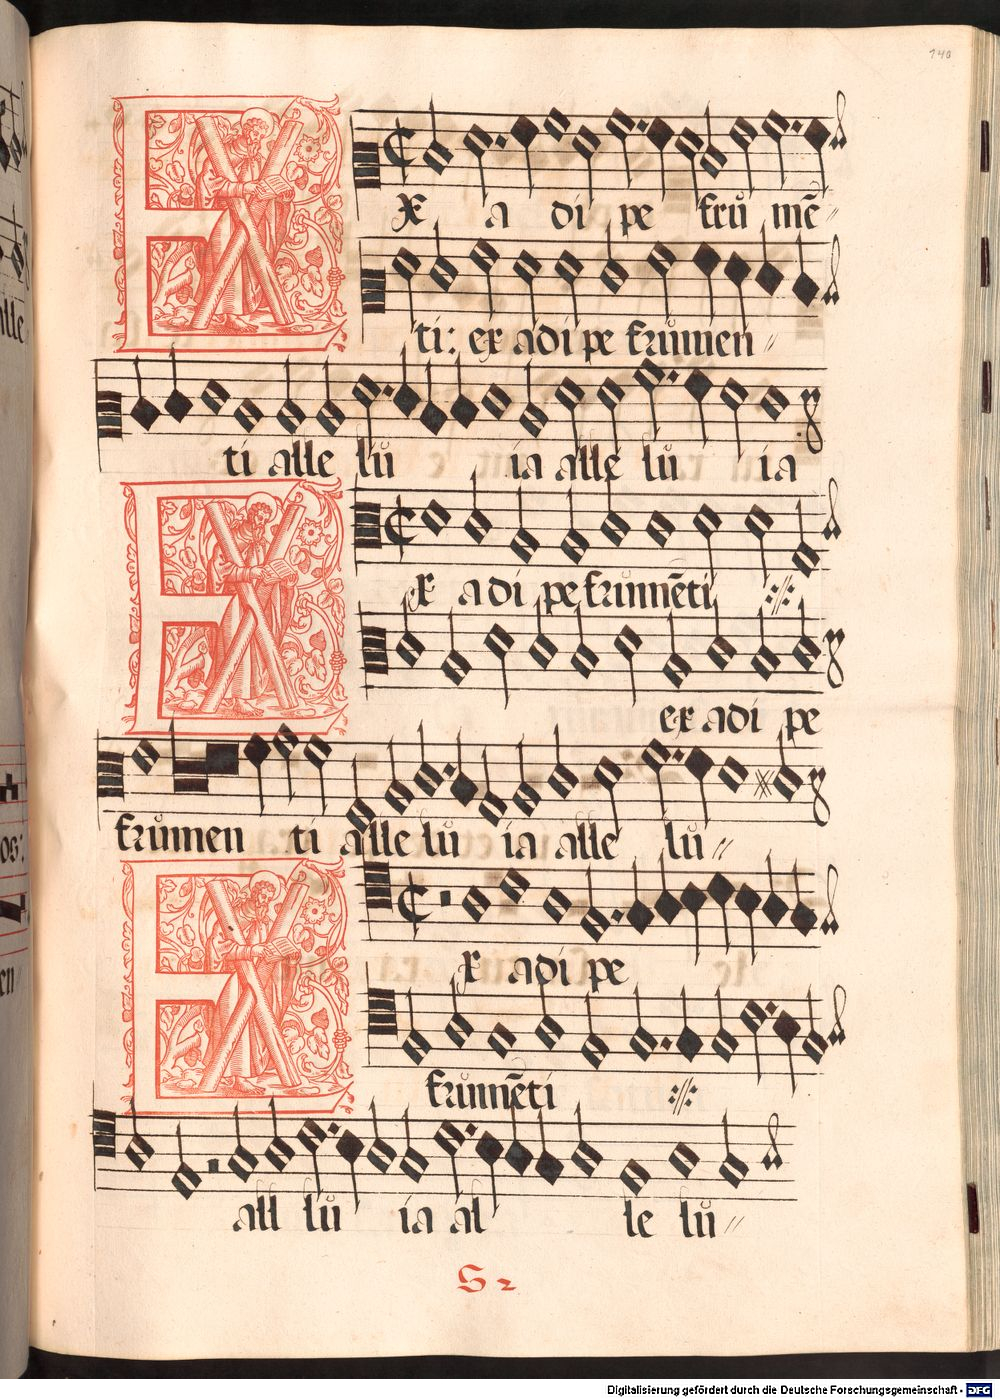 140
EX a di pe frů mē〃
ti: ex adi pe frůmen〃
ti alle lů ia alle lů ia
EX adi pe frůmēti ·//·
ex adi pe
frůmen ti alle lů ia alle lů〃
EX adi pe
frůmēti ·//·
all lů ia al le lů〃
S 2
Digitalisierung gefördert durch die Deutsche Forschungsgemeinschaft - DFG